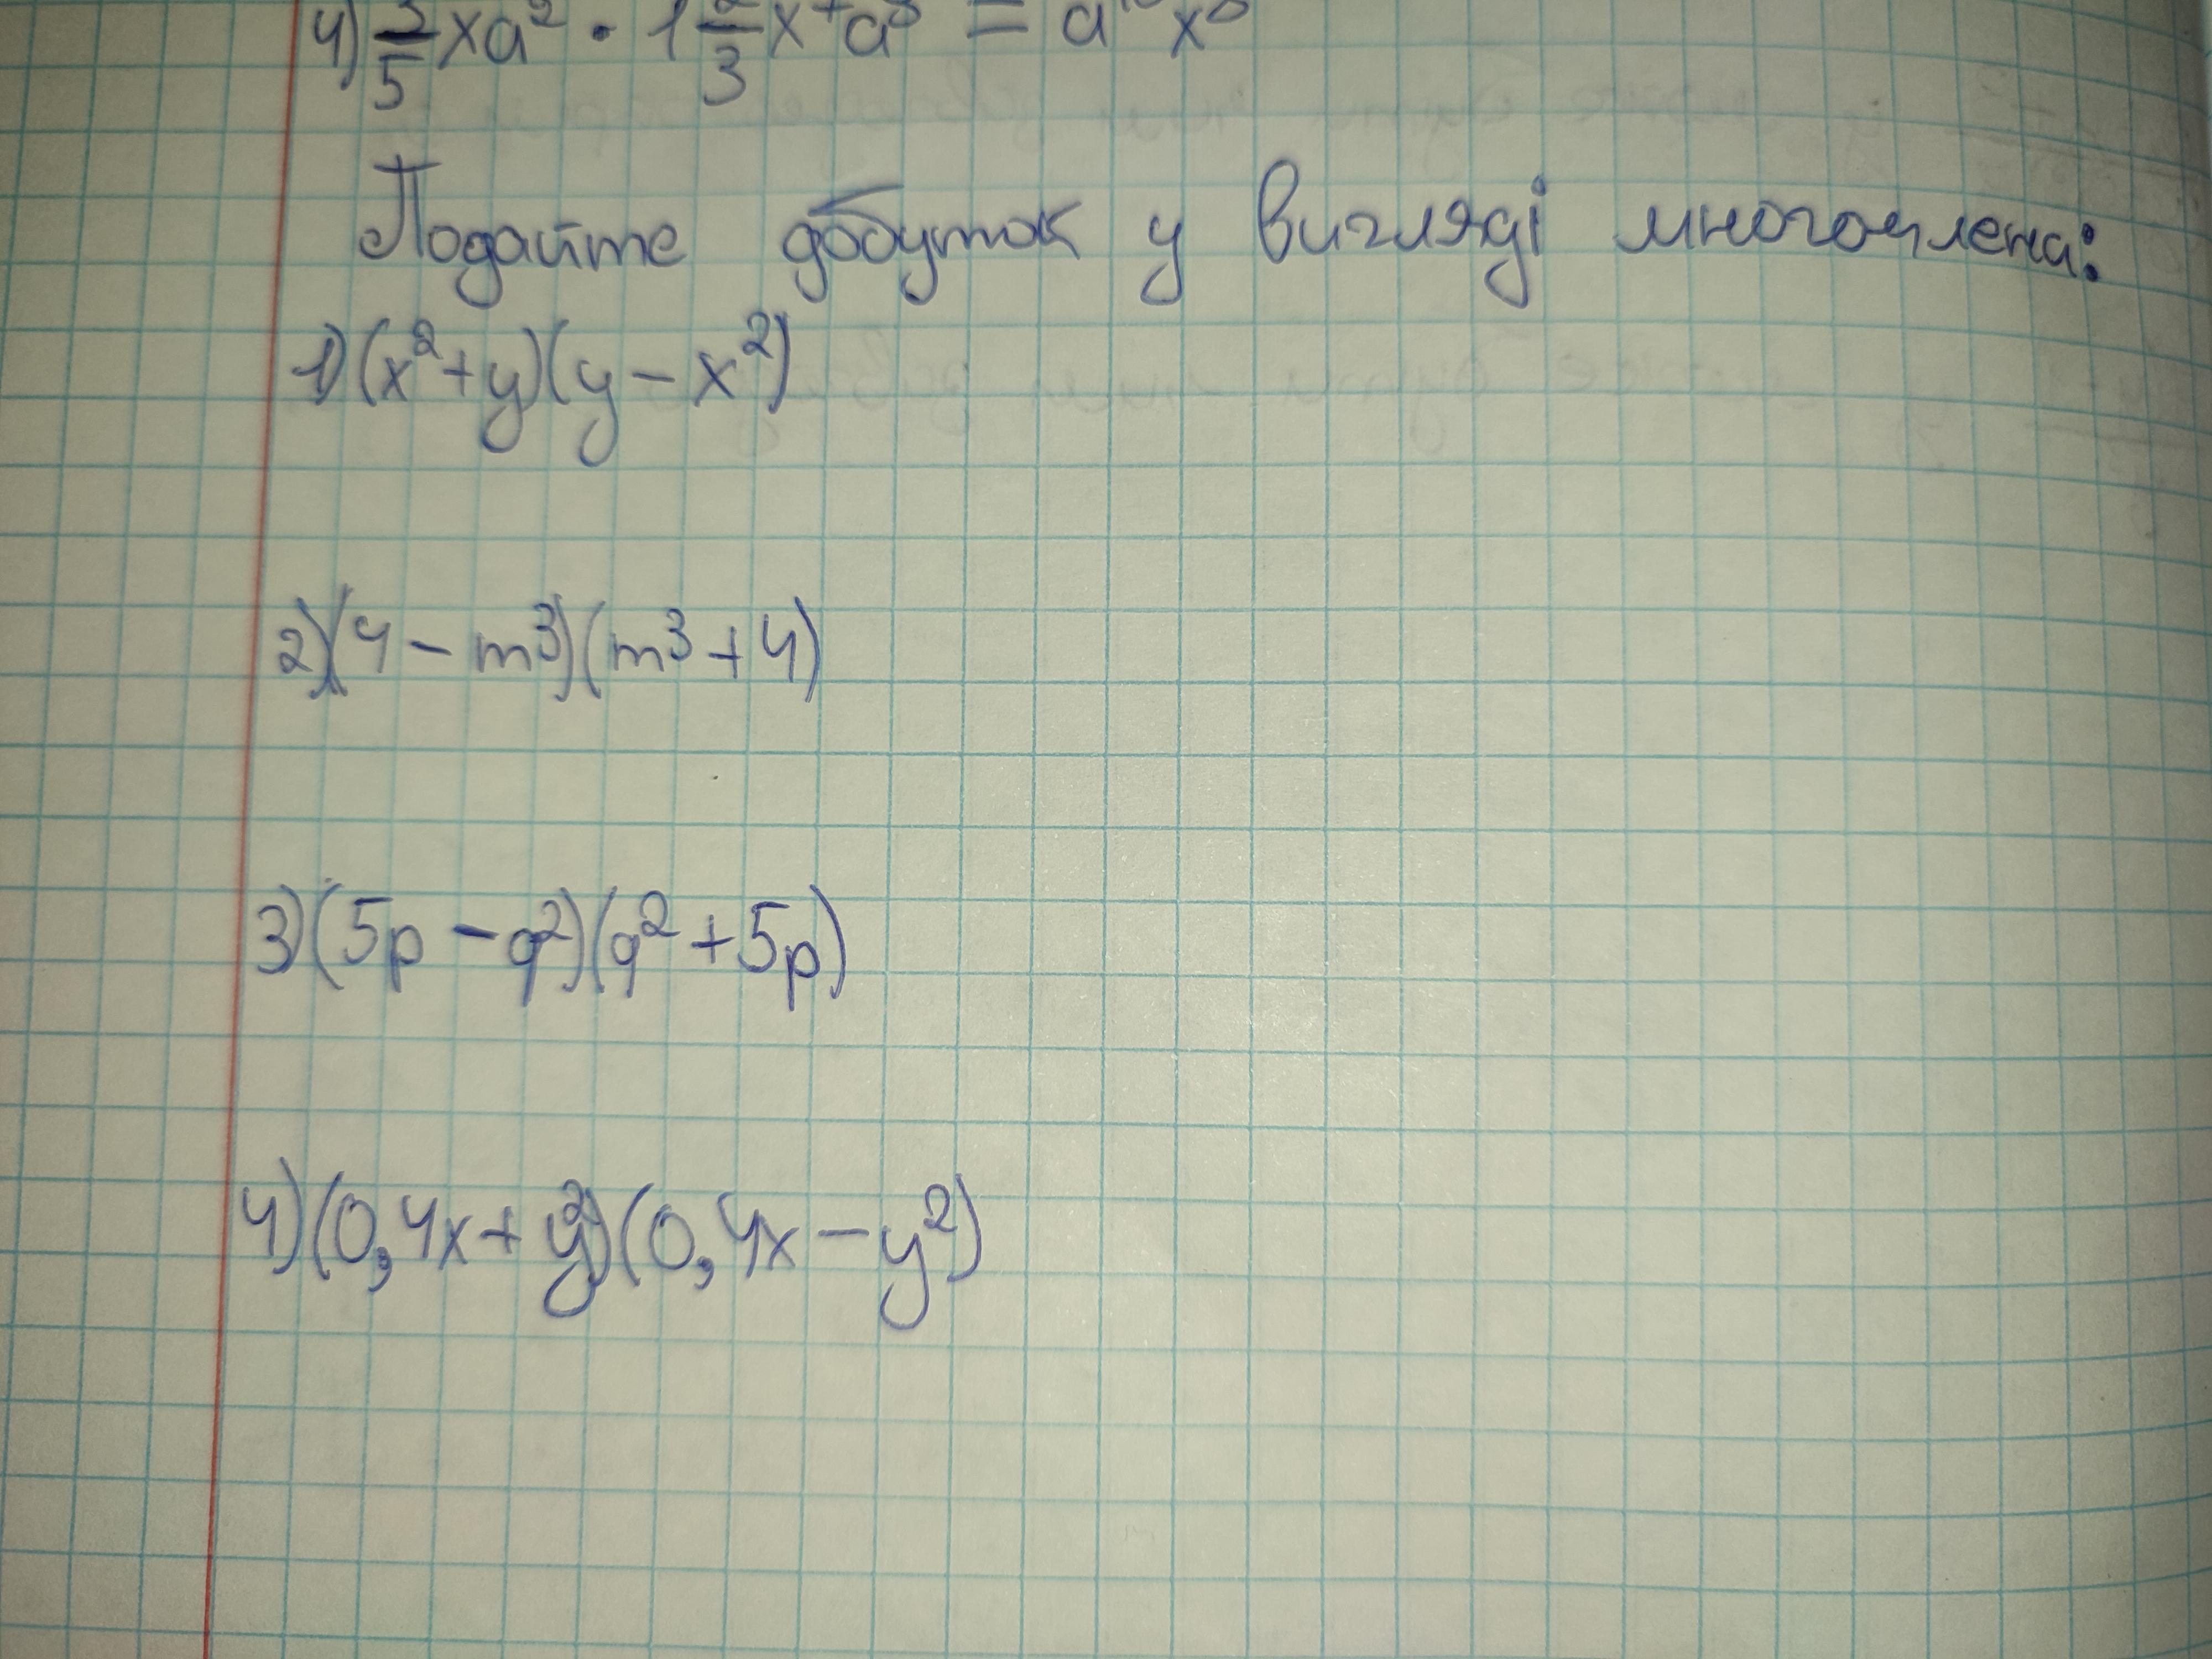 4) 3/5 xa² · 1 2/3 x⁷a⁸ = a¹⁰x⁸
Подайте дбуток у вигляді многочлена:
1) (x²+y)(y-x²)
2) (4-m³)(m³+4)
3) (5p-q²)(q²+5p)
4) (0,4x+y²)(0,4x-y²)